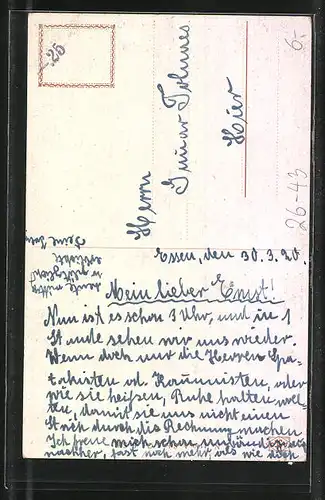 -.25
6.-
26-43
Herrn
Gunar Tolnaes
Hier
Essen, den 30.3.20.
Mein lieber Ernst!
Nun ist es schon 3 Uhr, und in 1
Stunde sehen wir uns wieder.
Wenn doch nur die Herren Spa-
takisten od. Kommunisten, oder
wie sie heißen, Ruhe halten woll-
ten, damit sie uns nicht einen
Strich durch die Rechnung machen.
Ich freue mich schon unbändig auf
nachher, fast noch mehr, als wie Du